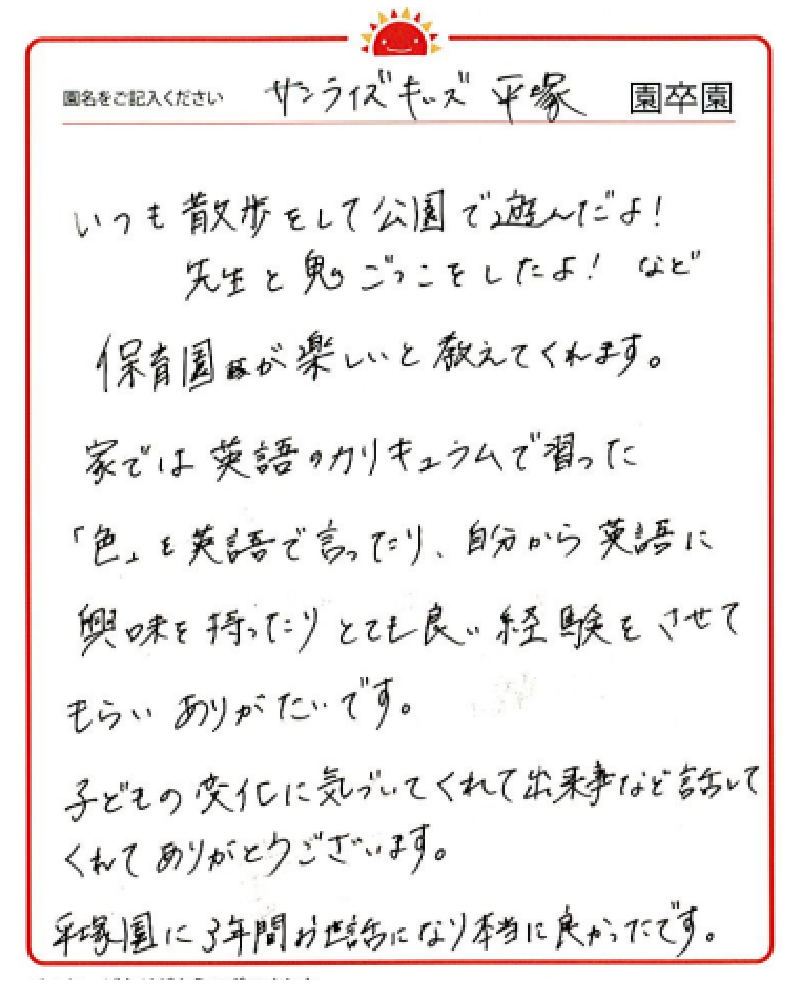 園名をご記入ください サンライズキッズ 平塚 園卒園
いつも散歩をして公園で遊んだよ!
先生と鬼ごっこをしたよ! など
保育園が楽しいと教えてくれます。
家では英語のカリキュラムで習った
「色」を英語で言ったり、自分から英語に
興味を持ったりとても良い経験をさせて
もらいありがたいです。
子どもの変化に気づいてくれて出来事など話して
くれてありがとうございます。
平塚園に3年間お世話になり本当に良かったです。